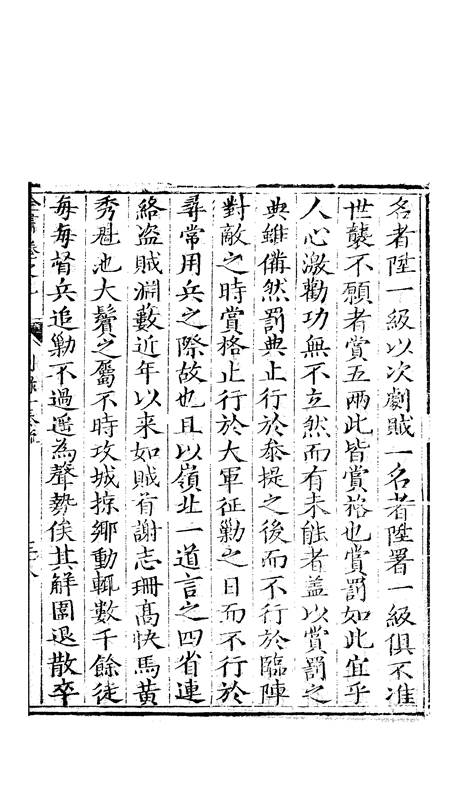 名者陞一級以次劇賊一名者陞署一級俱不准
世襲不願者賞五兩此皆賞格也賞罰如此宜乎
人心激勸功無不立然而有未能者盖以賞罰之
典雖備然罰典止行於叅提之後而不行於臨陣
對敵之時賞格止行於大軍征勦之日而不行於
尋常用兵之際故也且以嶺北一道言之四省連
絡盗賊淵藪近年以来如賊首謝志珊髙快馬黄
秀魁池大鬢之屬不時攻城掠鄉動輒數千餘徒
每每督兵追勦不過遥為聲勢俟其解圍退散卒